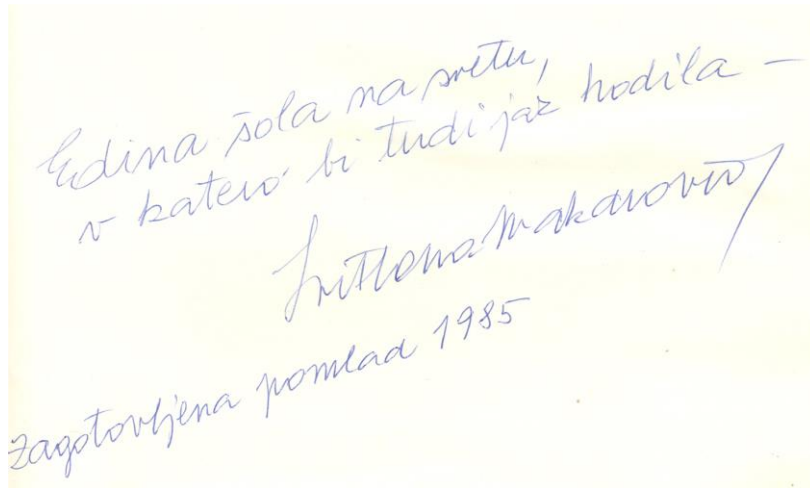 Edina šola na svetu,
v katero bi tudi jaz hodila —
Svetlana Makarovič
zagotovljena pomlad 1985